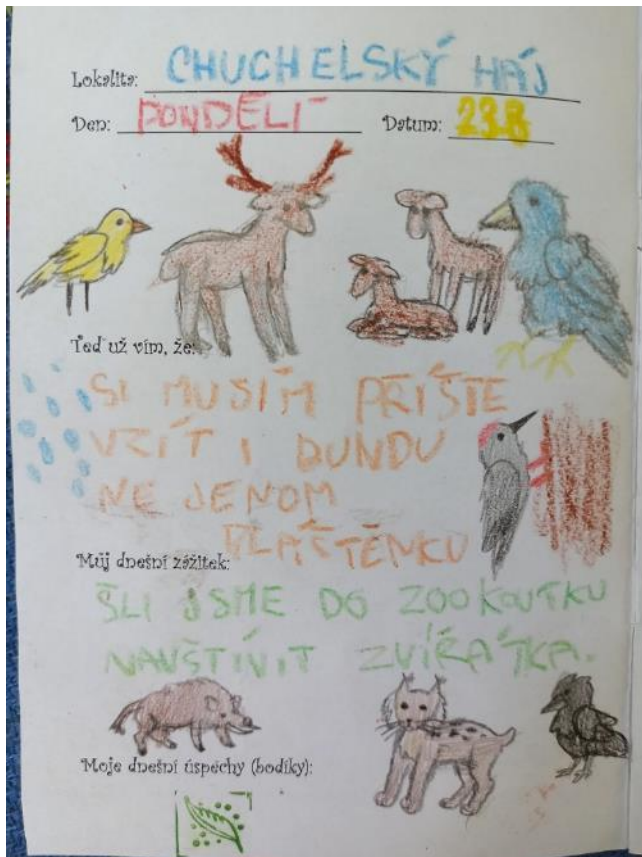 Lokalita: CHUCHELSKÝ HÁJ
Den: PONDĚLÍ Datum: 23.8
Teď už vím, že:
SI MUSÍM PŘÍŠTE
VZÍT I BUNDU
NE JENOM
PLÁŠTĚNKU
Můj dnešní zážitek:
ŠLI JSME DO ZOOKOUTKU
NAVŠTÍVIT ZVÍŘÁTKA.
Moje dnešní úspěchy (bodíky):